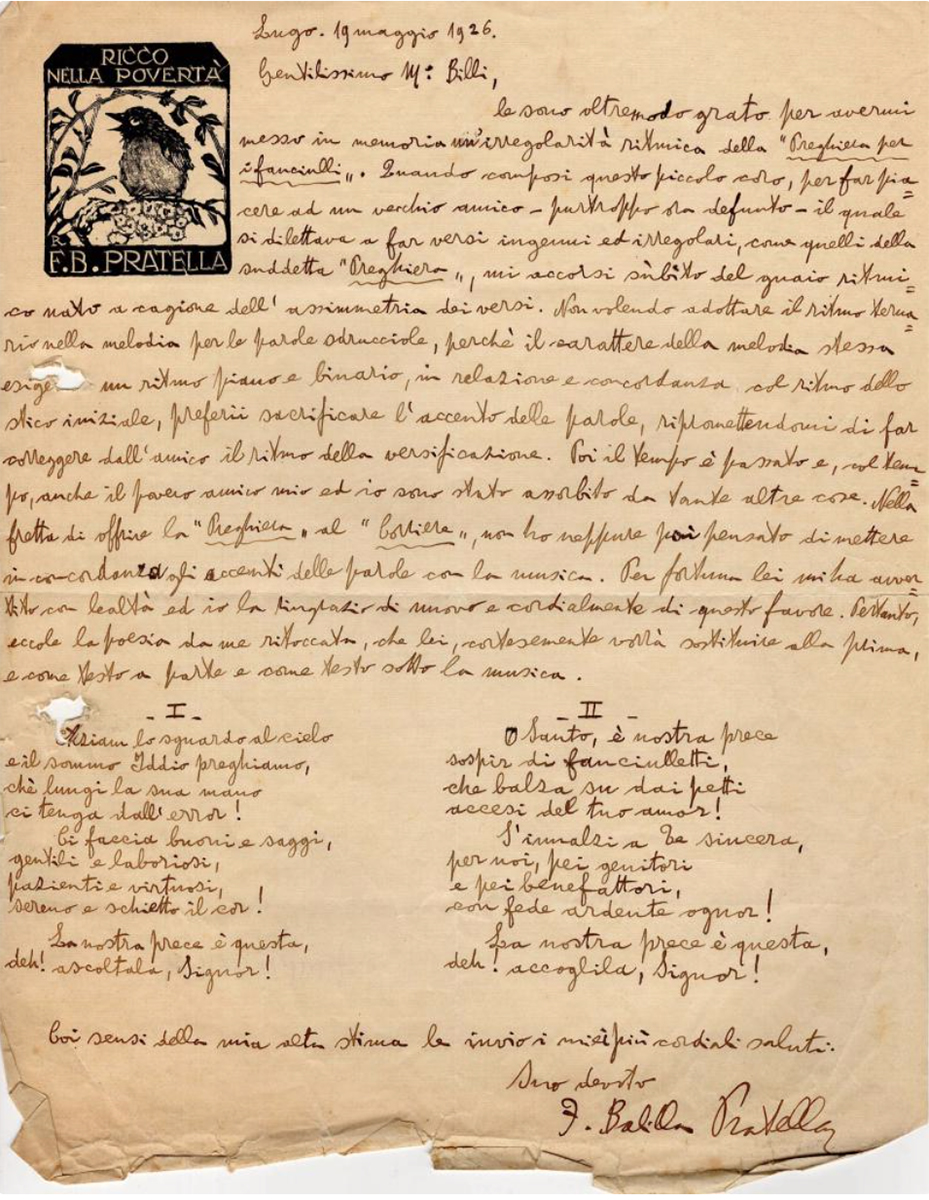 RICCO
NELLA POVERTÀ
R.
F.B. PRATELLA
Lugo. 19 maggio 1926.
Gentilissimo M.° Billi,
le sono oltremodo grato per avermi
messo in memoria un'irregolarità ritmica della "Preghiera per
i fanciulli„. Quando composi questo piccolo coro, per far pia=
cere ad un vecchio amico – purtroppo ora defunto – il quale
si dilettava a far versi ingenui ed irregolari, come quelli della
suddetta "Preghiera„, mi accorsi sùbito del guaio ritmi=
co nato a cagione dell'assimmetria dei versi. Non volendo adottare il ritmo terna=
rio nella melodia per le parole sdrucciole, perchè il carattere della melodia stessa
esige un ritmo piano e binario, in relazione e concordanza col ritmo dello
stico iniziale, preferii sacrificare l'accento delle parole, ripromettendomi di far
correggere dall'amico il ritmo della versificazione. Poi il tempo è passato e, col tem=
po, anche il povero amico mio ed io sono stato assorbito da tante altre cose. Nella
fretta di offrire la "Preghiera„ al "Corriere„, non ho neppure poi pensato di mettere
in concordanza gli accenti delle parole con la musica. Per fortuna lei mi ha avver=
tito con lealtà ed io la ringrazio di nuovo e cordialmente di questo favore. Pertanto,
eccole la poesia da me ritoccata, che lei, cortesemente vorrà sostituire alla prima,
e come testo a parte e come testo sotto la musica.
- I -
Alziam lo sguardo al cielo
e il sommo Iddio preghiamo,
chè lungi la sua mano
ci tenga dall'error!
Ci faccia buoni e saggi,
gentili e laboriosi,
pazienti e virtuosi,
sereno e schietto il cor!
La nostra prece è questa,
deh! ascoltala, Signor!
- II -
O Santo, è nostra prece
sospir di fanciulletti,
che balza su dai petti
accesi del tuo amor!
S'innalzi a Te sincera,
per noi, pei genitori
e pei benefattori,
con fede ardente ognor!
La nostra prece è questa,
deh! accoglila, Signor!
Coi sensi della mia alta stima le invio i miei più cordiali saluti.
Suo devoto
F. Balilla Pratella